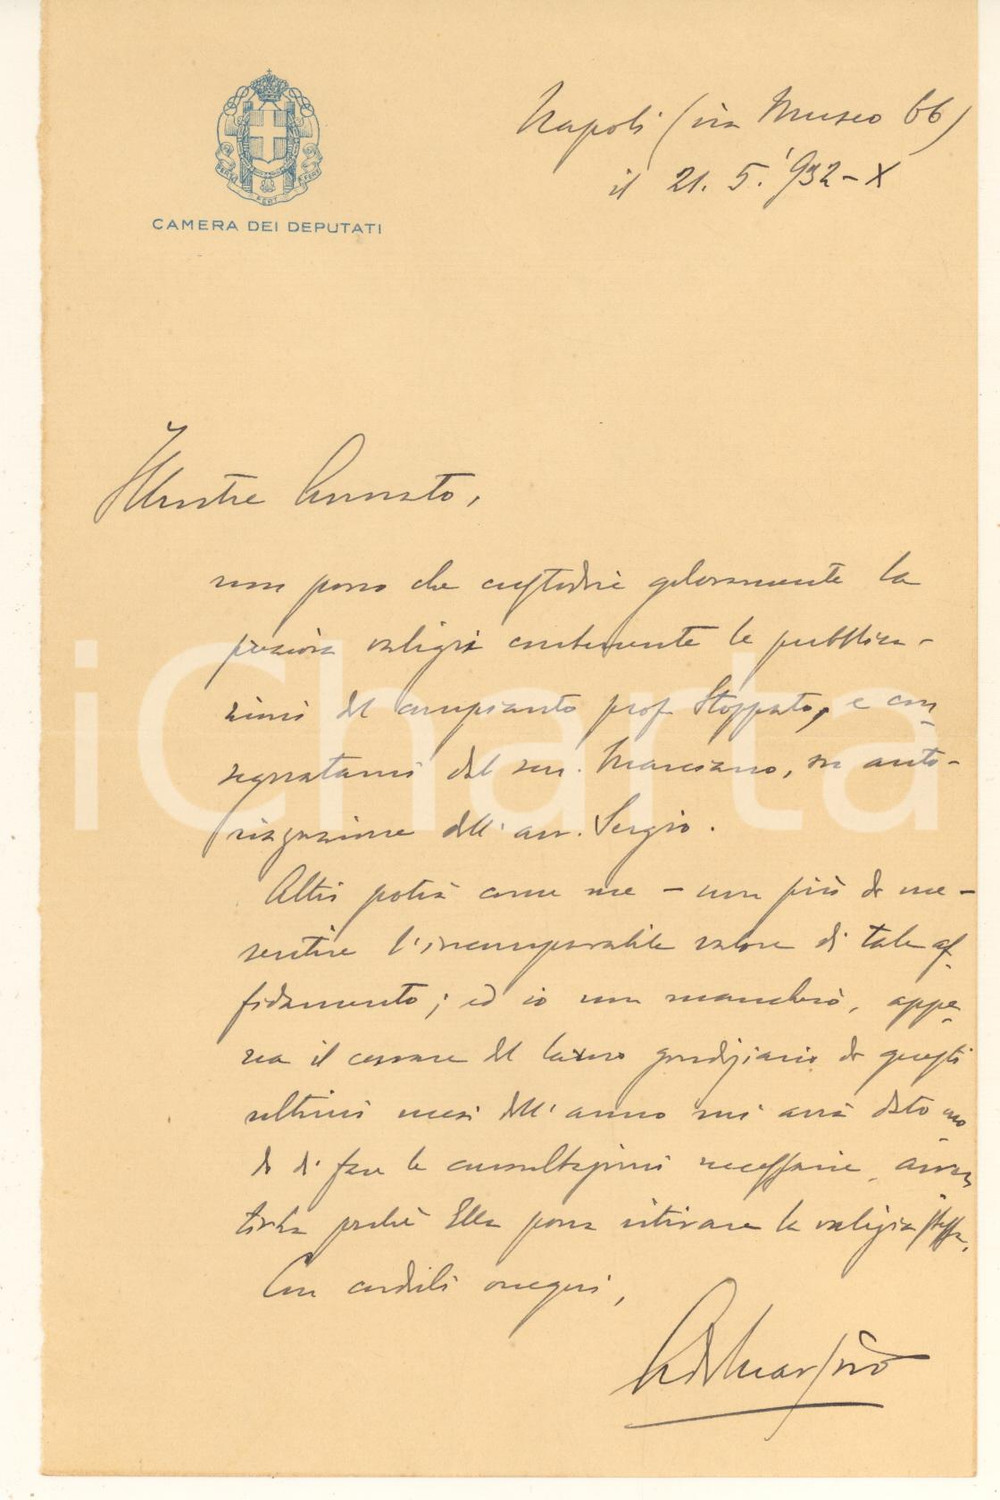 CAMERA DEI DEPUTATI
FERT FERT FERT
Napoli (via Museo 66)
il 21. 5. '932-X
Illustre
non posso che custodire gelosamente la
preziosa valigia contenente le pubblica-
zioni del compianto prof. Stoppato, e con-
segnatami dal sen. Marciano, su auto-
rizzazione dell'avv. Sergio.
Altri potrà come me - non più di me -
sentire l'incomparabile valore di tale af-
fidamento; ed io non mancherò, appe-
na il cessare del lavoro giudiziario di questi
ultimi mesi dell'anno mi avrà dato mo
do di fare le consultazioni necessarie, avver
tirla perchè Ella possa ritirare la valigia stessa.
Con cordiali ossequi,
iCharta